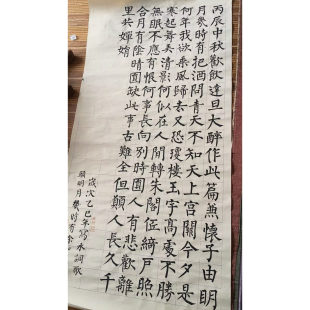 丙辰中秋歡飲達旦大醉作此篇兼懷子由明
月幾時有把酒問青天不知天上宮闕今夕是
何年我欲乘風歸去又恐瓊樓玉宇高處不勝
寒起舞弄清影何似在人間轉朱閣低綺戶照
無眠不應有恨何事長向別時圓人有悲歡離
合月有陰晴圓缺此事古難全但願人長久千
里共嬋娟
歲次乙巳年寫水調歌
頭明月幾時有